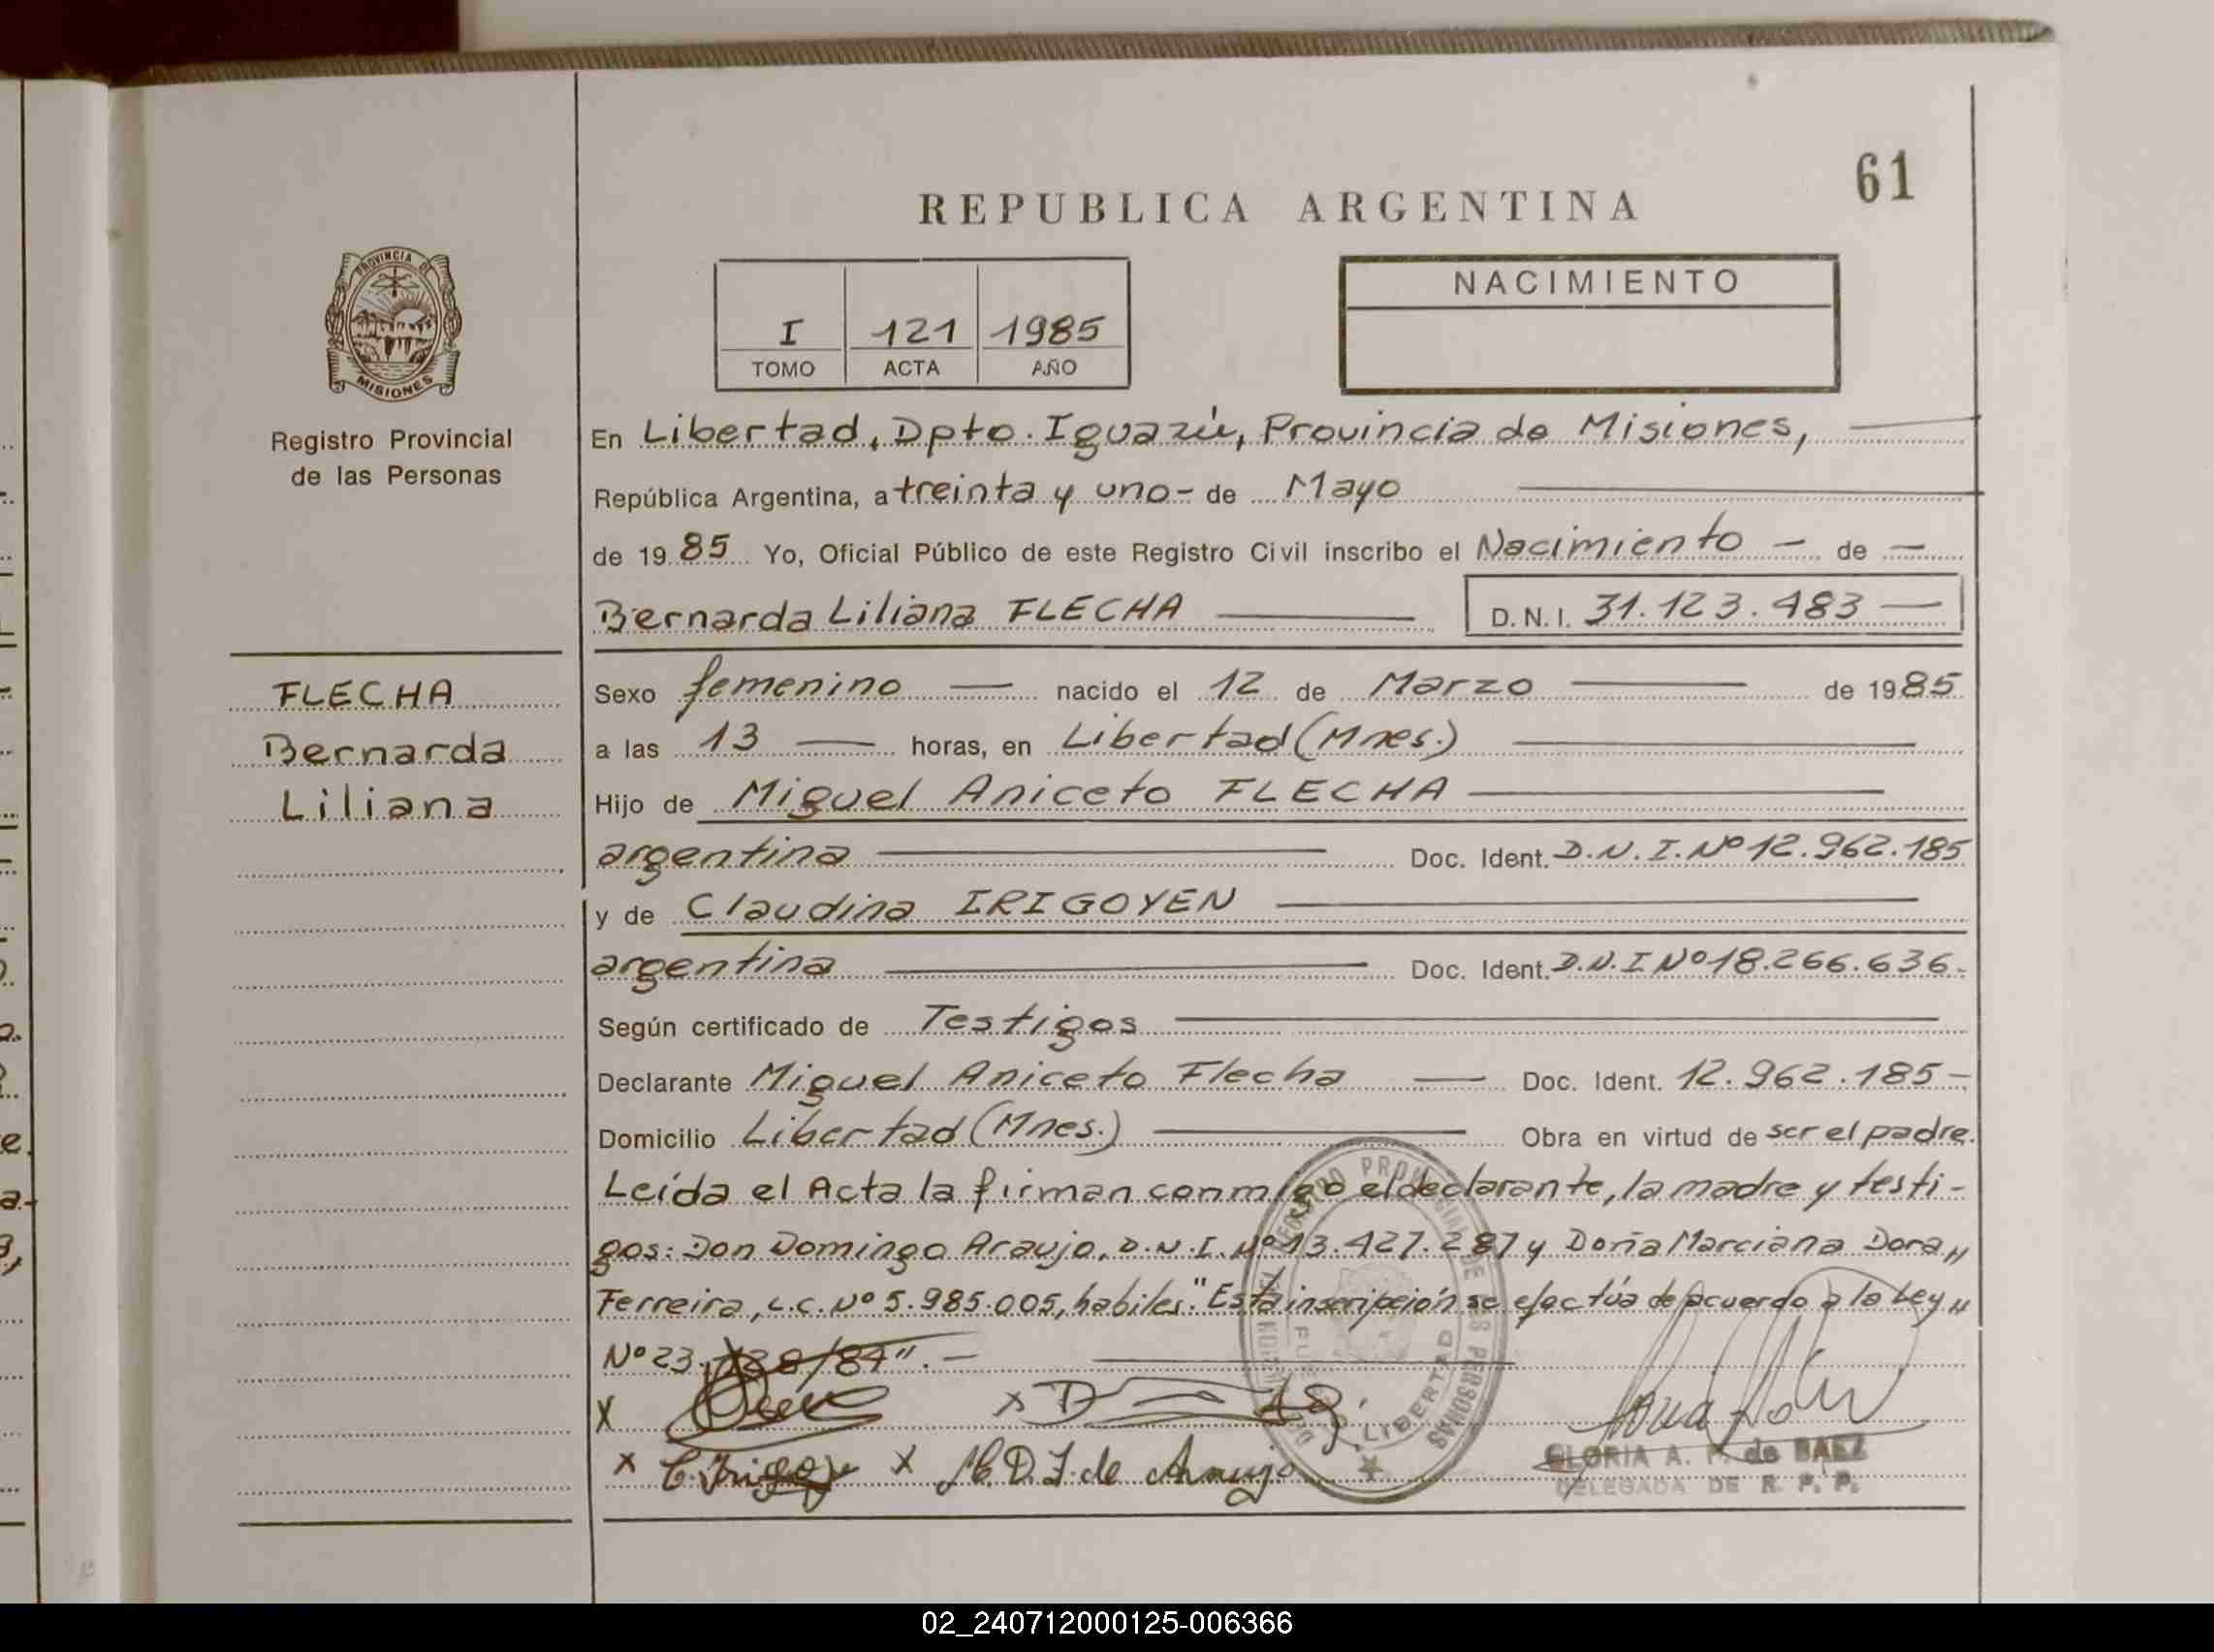 61
REPUBLICA ARGENTINA
PROVINCIA DE
MISIONES
Registro Provincial
de las Personas
I 121 1985
TOMO ACTA AÑO
NACIMIENTO
En Libertad, Dpto. Iguazú, Provincia de Misiones,
República Argentina, a treinta y uno - de Mayo
de 1985 Yo, Oficial Público de este Registro Civil inscribo el Nacimiento - de -
Bernarda Liliana FLECHA D. N. I. 31.123.483 -
FLECHA
Bernarda
Liliana
Sexo femenino - nacido el 12 de Marzo de 1985
a las 13 - horas, en Libertad (Mnes.)
Hijo de Miguel Aniceto FLECHA
argentina Doc. Ident. D.N.I. Nº 12.962.185
y de Claudina IRIGOYEN
argentina Doc. Ident. D.N.I Nº 18.266.636.
Según certificado de Testigos
Declarante Miguel Aniceto Flecha - Doc. Ident. 12.962.185 -
Domicilio Libertad (Mnes.) Obra en virtud de ser el padre.
Leída el Acta la firman conmigo el declarante, la madre y testi-
gos: Don Domingo Araujo, D.N.I. Nº 13.427.287 y Doña Marciana Dora "
Ferreira, L.C. Nº 5.985.005, habiles. "Esta inscripción se efectúa de acuerdo a la Ley "
Nº 23. /84". -
X X
X C. Irigoy X M. D. F. de Araujo
REGISTRO PROVINCIAL DE LAS PERSONAS
LIBERTAD
GLORIA A. F. de BAEZ
DELEGADA DE R. P. P.
02_240712000125-006366